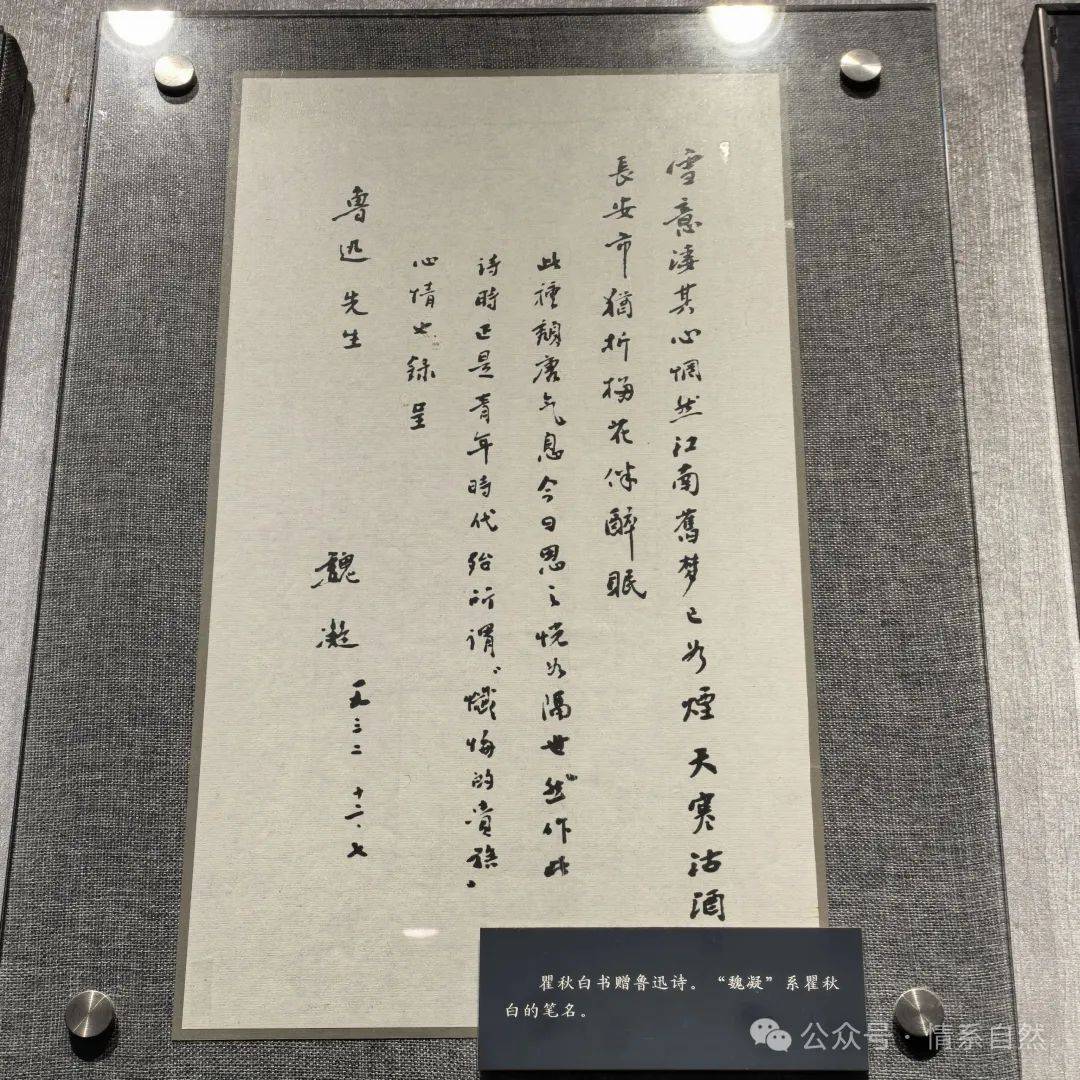 雪意凄其心惘然江南舊梦已如煙天寒沽酒
長安市猶折梅花伴醉眠
此種頹唐气息今日思之恍如隔世然作此
詩時正是青年時代殆所謂“懺悔的貴族”
心情也錄呈
魯迅先生
魏凝
一九三二、十二、七
瞿秋白书赠鲁迅诗。“魏凝”系瞿秋
白的笔名。
公众号·情系自然